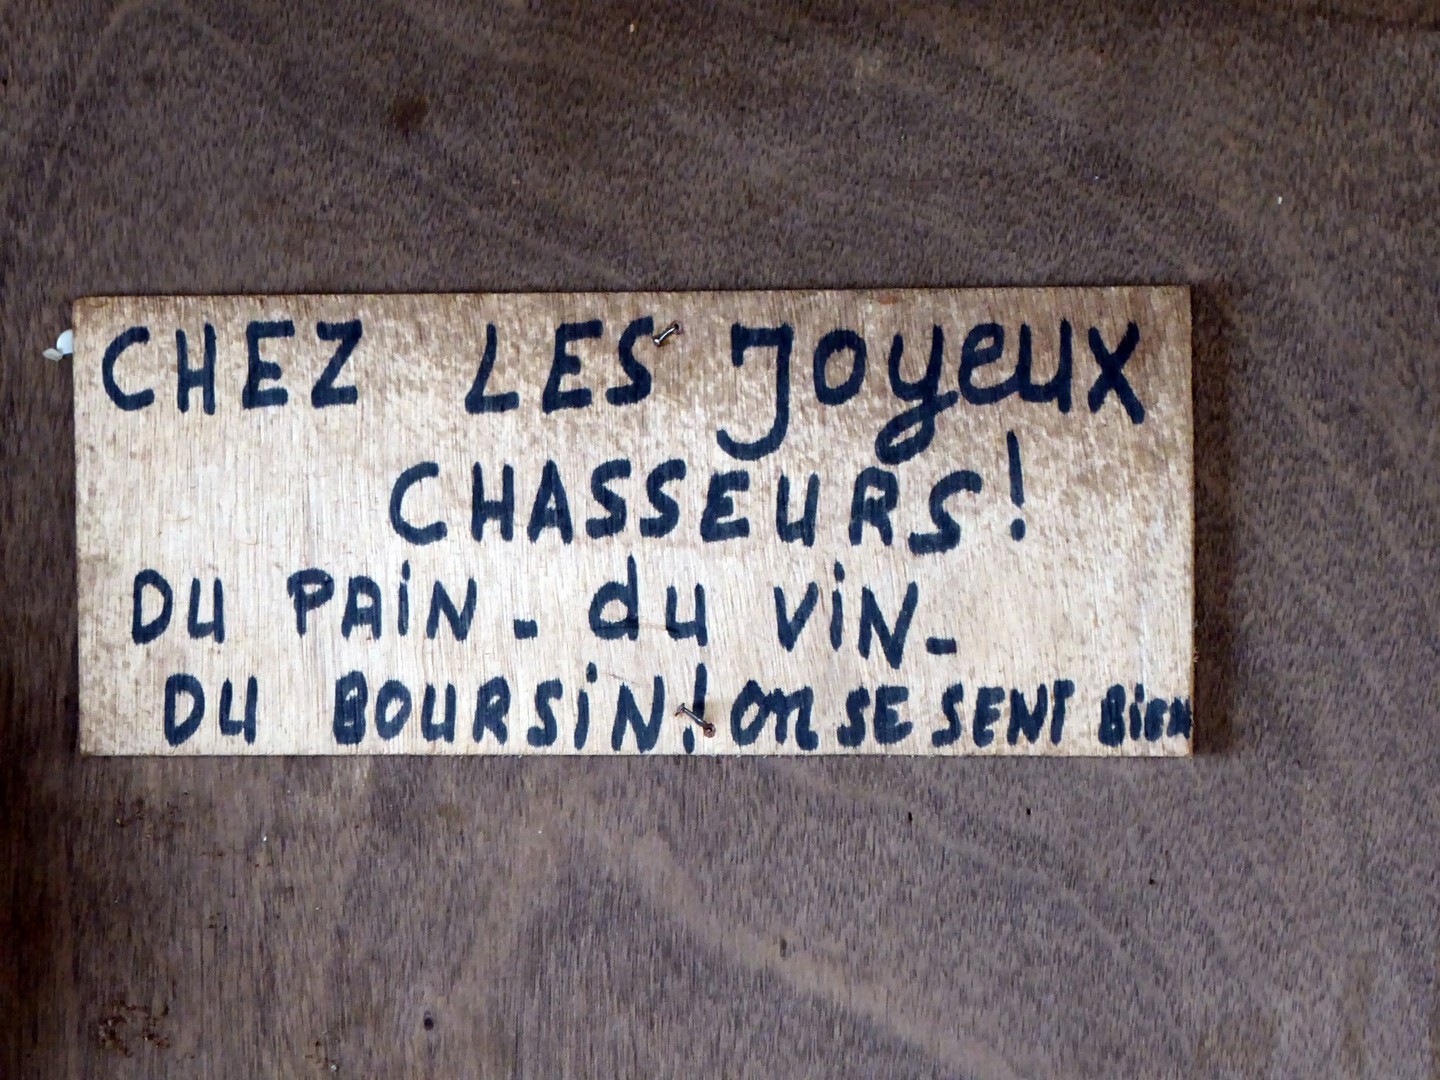 CHEZ LES JOyeux
CHASSEURS!
DU PAiN - du ViN -
DU BOURSiN! on SE SENT BiEN